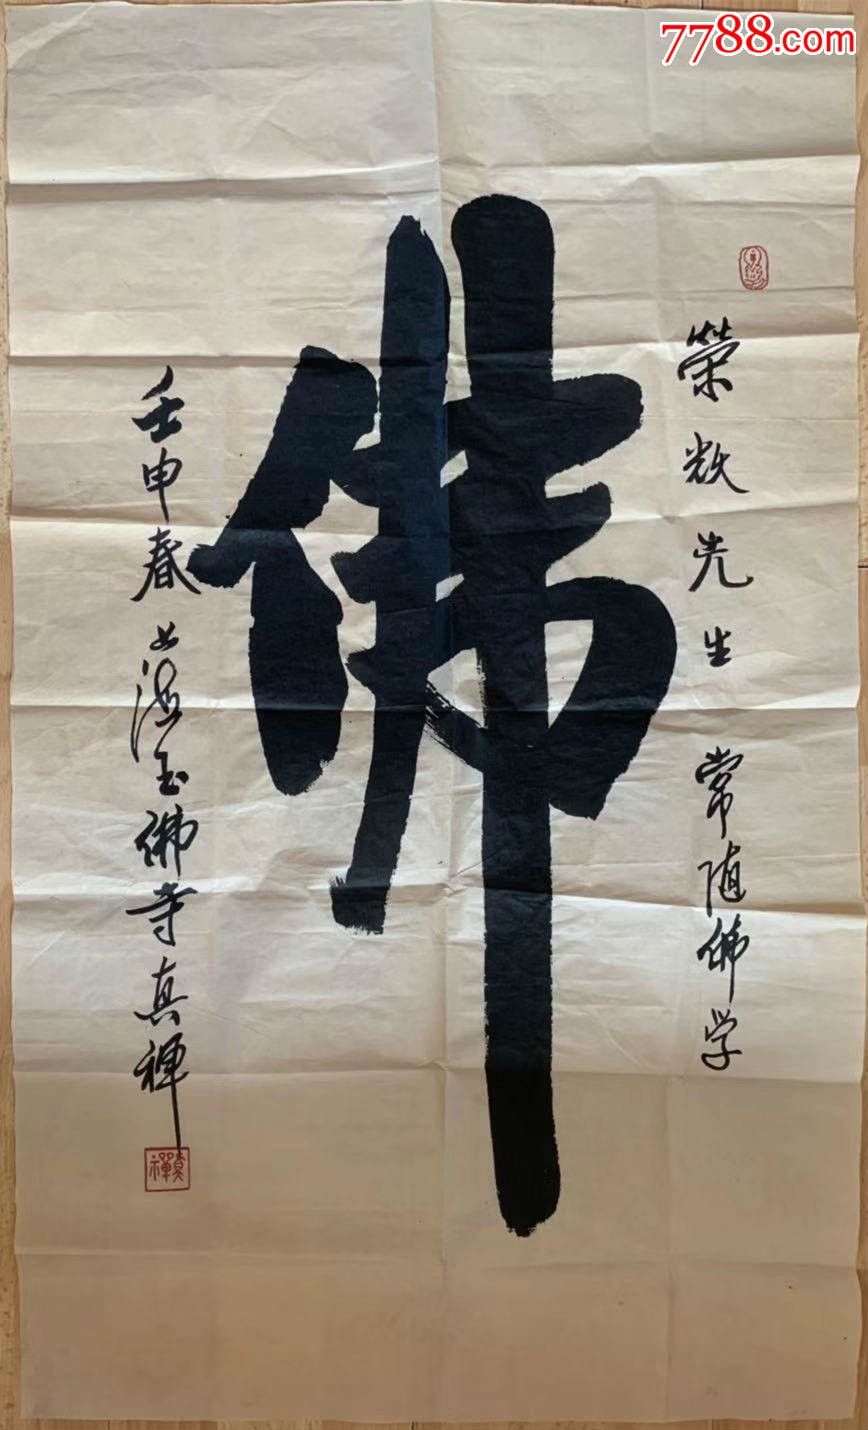 7788.com
榮先生 常随佛学
佛
壬申春 上海玉佛寺真禅
真禪